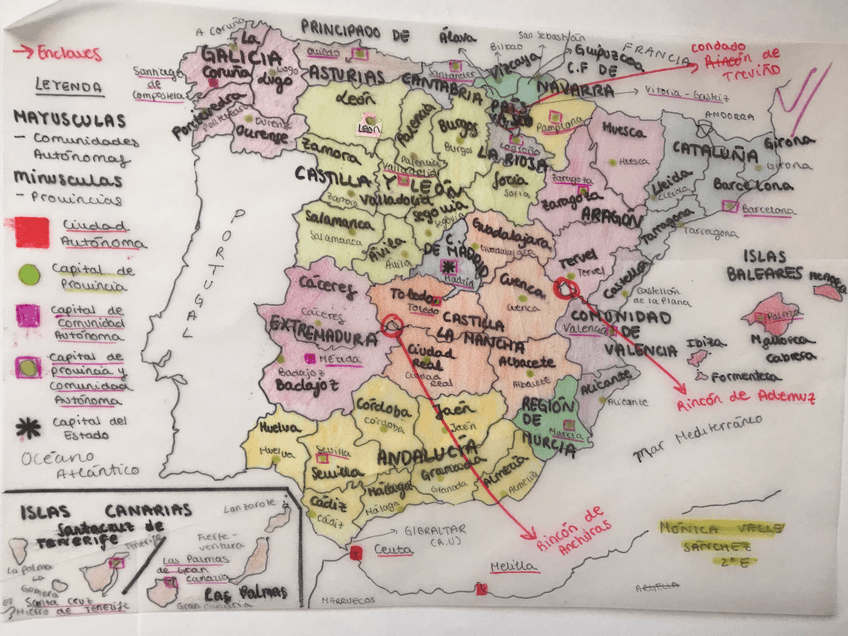 → Enclaves
LEYENDA
MAYUSCULAS
- Comunidades
Autónomas
Minusculas
- Provincias
Ciudad
Autónoma
Capital de
Provincia
Capital de
Comunidad
Autónoma
Capital de
provincia y
Comunidad
Autónoma
Capital del
Estado
Océano
Atlántico
PORTUGAL
FRANCIA
ANDORRA
A Coruña
La
Coruña
GALICIA
Lugo
Lugo
Santiago de
compostela
Pontevedra
Pontevedra
Ourense
Ourense
PRINCIPADO DE
ASTURIAS
Oviedo
CANTABRIA
Santander
Álava
Bilbao
Vizcaya
San Sebastián
Guipuzcoa
PAÍS
VASCO
Vitoria-Gasteiz
condado
Rincón de
Treviño
C.F DE
NAVARRA
Pamplona
LA RIOJA
Logroño
León
León
Palencia
Palencia
Burgos
Burgos
Zamora
Zamora
CASTILLA Y LEÓN
Valladolid
Valladolid
Soria
Soria
Segovia
Segovia
Salamanca
Salamanca
Ávila
Ávila
C. DE MADRID
Madrid
Huesca
Huesca
Zaragoza
Zaragoza
ARAGÓN
Teruel
Teruel
CATALUÑA
Girona
Girona
Lleida
Lleida
Barcelona
Barcelona
Tarragona
Tarragona
Guadalajara
Guadalajara
Cuenca
Cuenca
Toledo
Toledo
CASTILLA
LA MANCHA
Ciudad
Real
Ciudad
Real
Albacete
Albacete
Cáceres
Cáceres
EXTREMADURA
Mérida
Badajoz
Badajoz
Castellón
Castellón
de la Plana
COMUNIDAD
Valencia
DE
VALENCIA
Alicante
Alicante
REGIÓN
DE
MURCIA
Murcia
Huelva
Huelva
Sevilla
Sevilla
Córdoba
Córdoba
Jaén
Jaén
ANDALUCÍA
Cádiz
Cádiz
Málaga
Málaga
Granada
Granada
Almería
Almería
ISLAS
BALEARES
Menorca
Palma
Mallorca
Cabrera
Ibiza
Formentera
Rincón de Ademuz
Mar Mediterráneo
Rincón de
Anchuras
GIBRALTAR
(R.U)
Ceuta
Melilla
MARRUECOS
ARGELIA
MÓNICA VALLE
SÁNCHEZ
2º E
ISLAS CANARIAS
Santacruz de
TENERIFE
Tenerife
La Palma
La
Gomera
El
Hierro
Santa Cruz
de TENERIFE
Lanzarote
Fuerte-
ventura
Las Palmas
de Gran
Canaria
Gran Canaria
Las Palmas